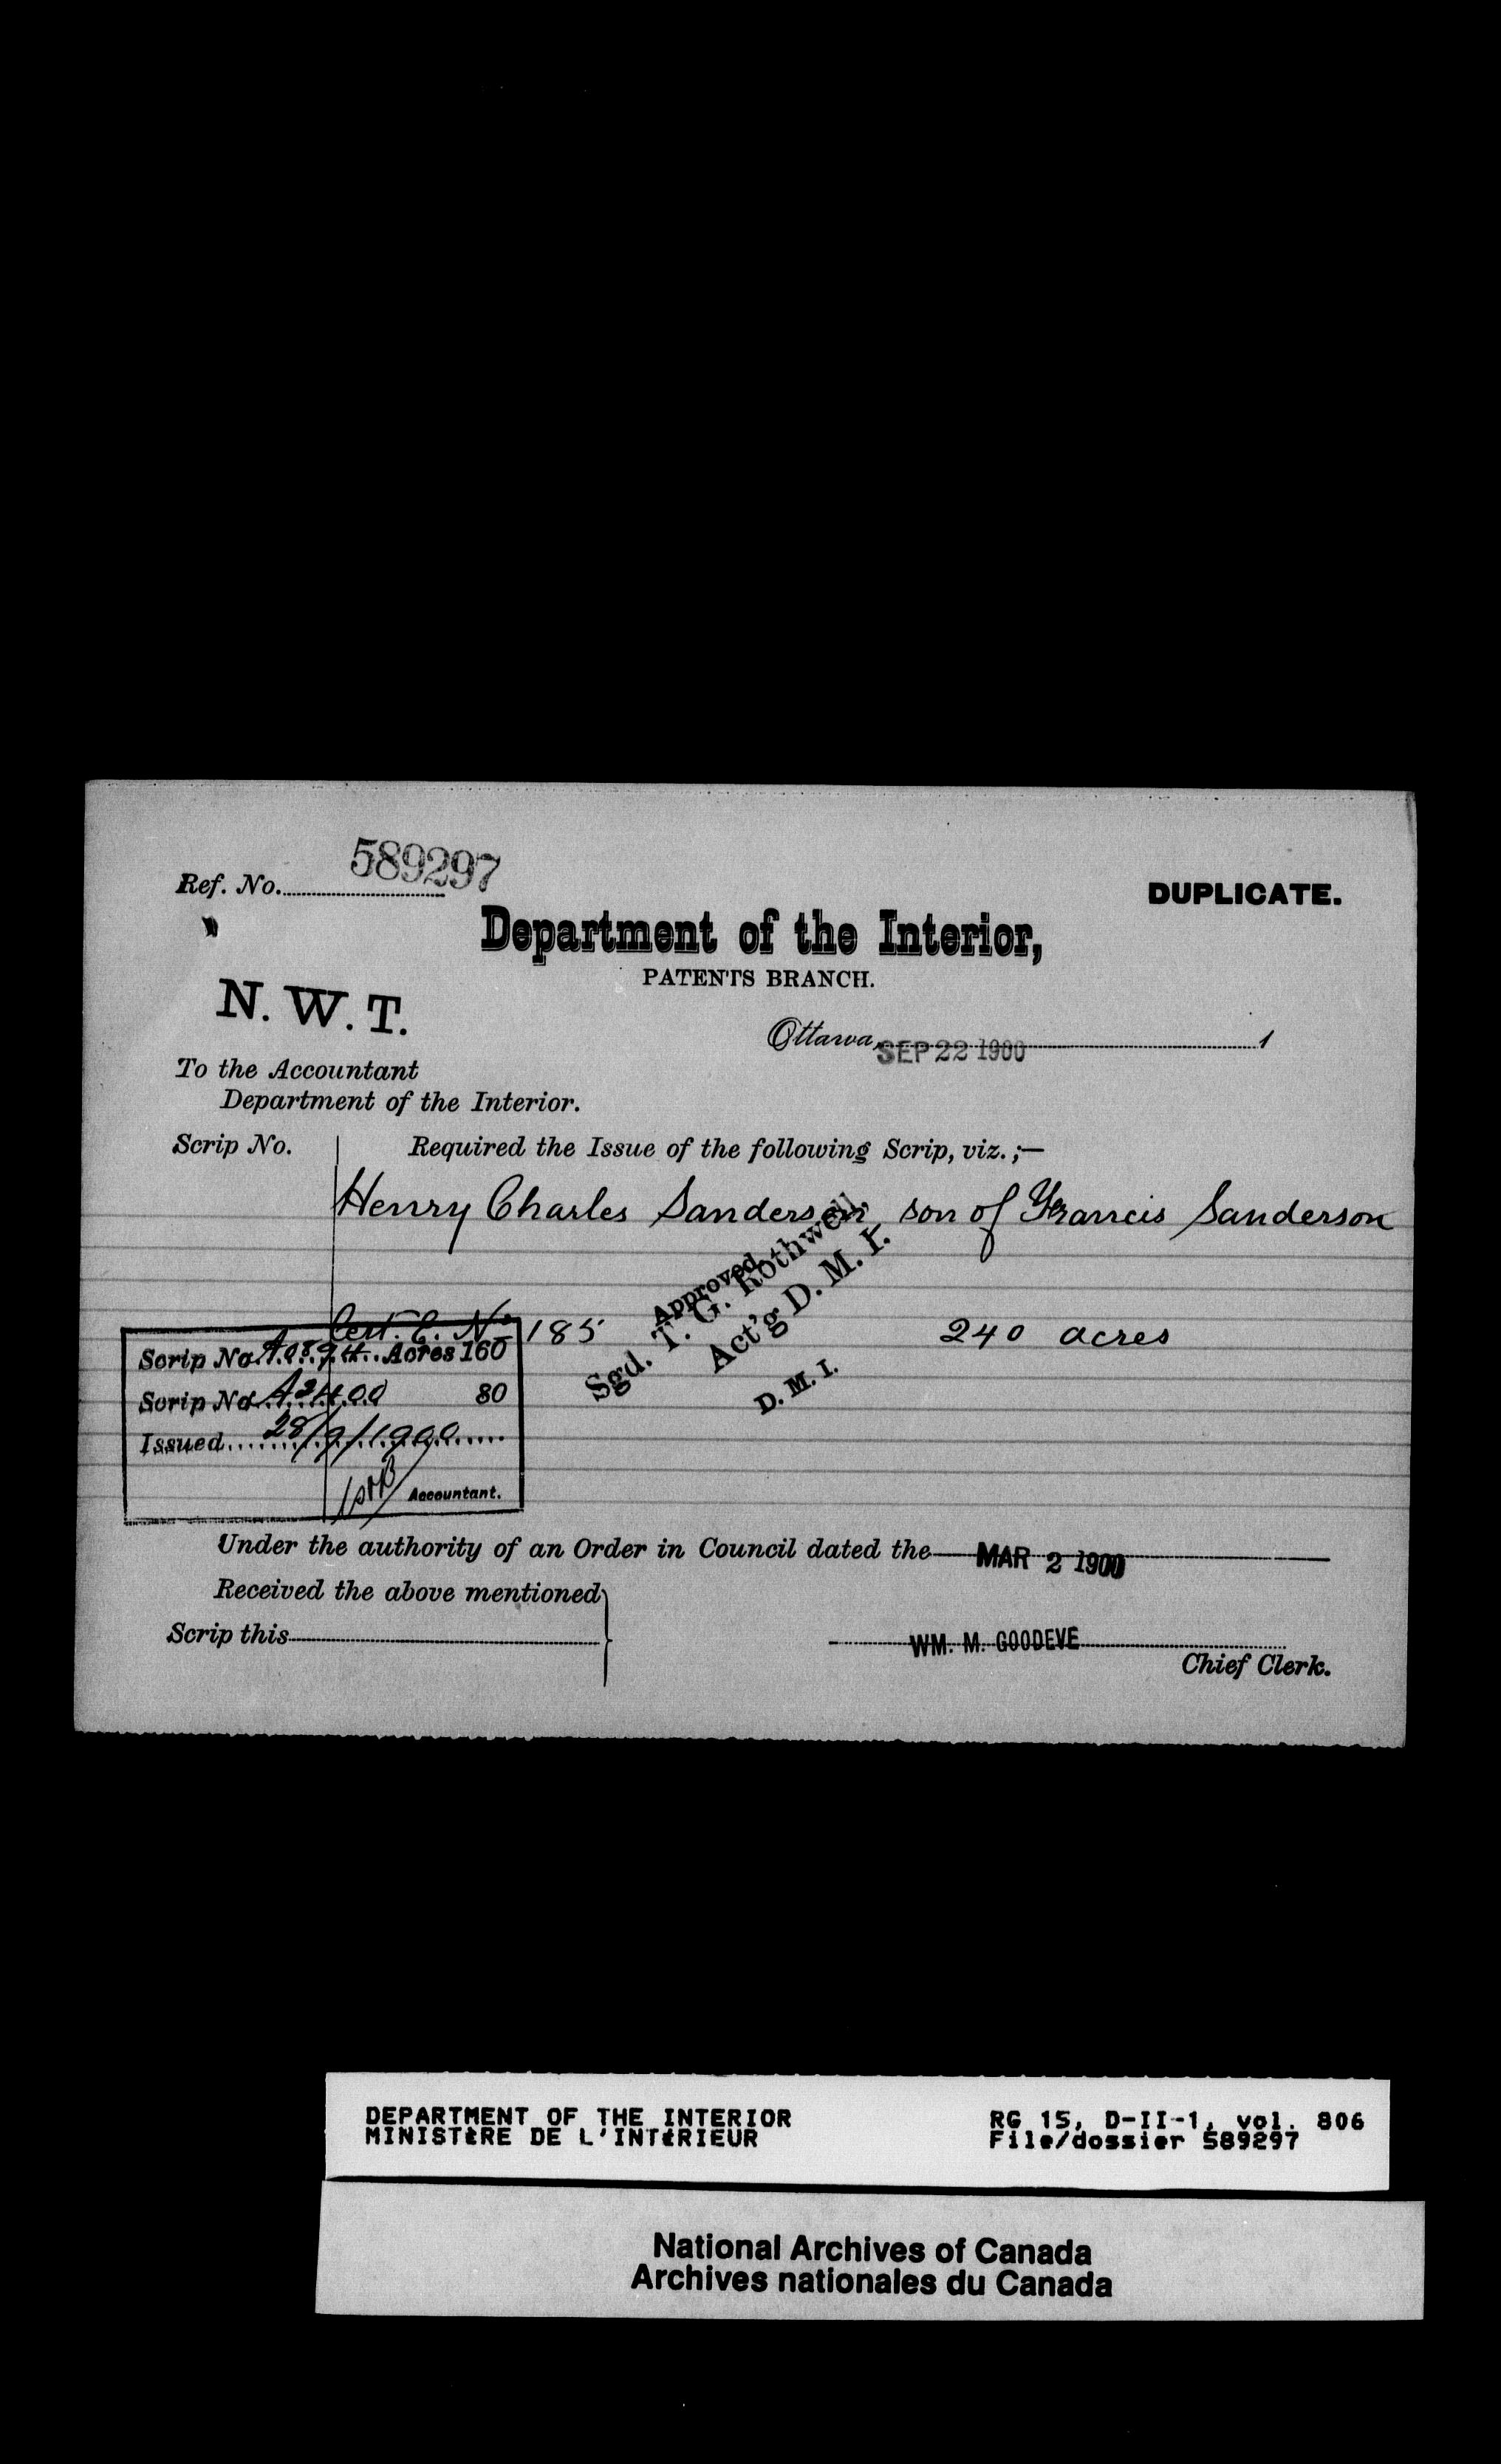 Ref. No. 589297
DUPLICATE.
Department of the Interior,
PATENTS BRANCH.
N. W. T.
Ottawa, SEP 22 1900 1
To the Accountant
Department of the Interior.
Scrip No. Required the Issue of the following Scrip, viz. ;—
Henry Charles Sanderson, son of Francis Sanderson
Approved
Sgd. T. G. Rothwell,
Act'g D. M. I.
D. M. I.
Cert. E. No 185 240 acres
Scrip No. Acres 160
Scrip No. 80
Issued 28/9/1900
Accountant.
Under the authority of an Order in Council dated the MAR 2 1900
Received the above mentioned
Scrip this
WM. M. GOODEVE
Chief Clerk.
DEPARTMENT OF THE INTERIOR
MINISTÈRE DE L'INTÉRIEUR
RG 15, D-II-1, vol. 806
File/dossier 589297
National Archives of Canada
Archives nationales du Canada